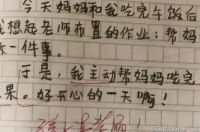 今天妈妈和我吃完午饭后
我想起老师布置的作业：帮妈
一件事。
于是，我主动帮妈妈吃完
果。好开心的一天啊！